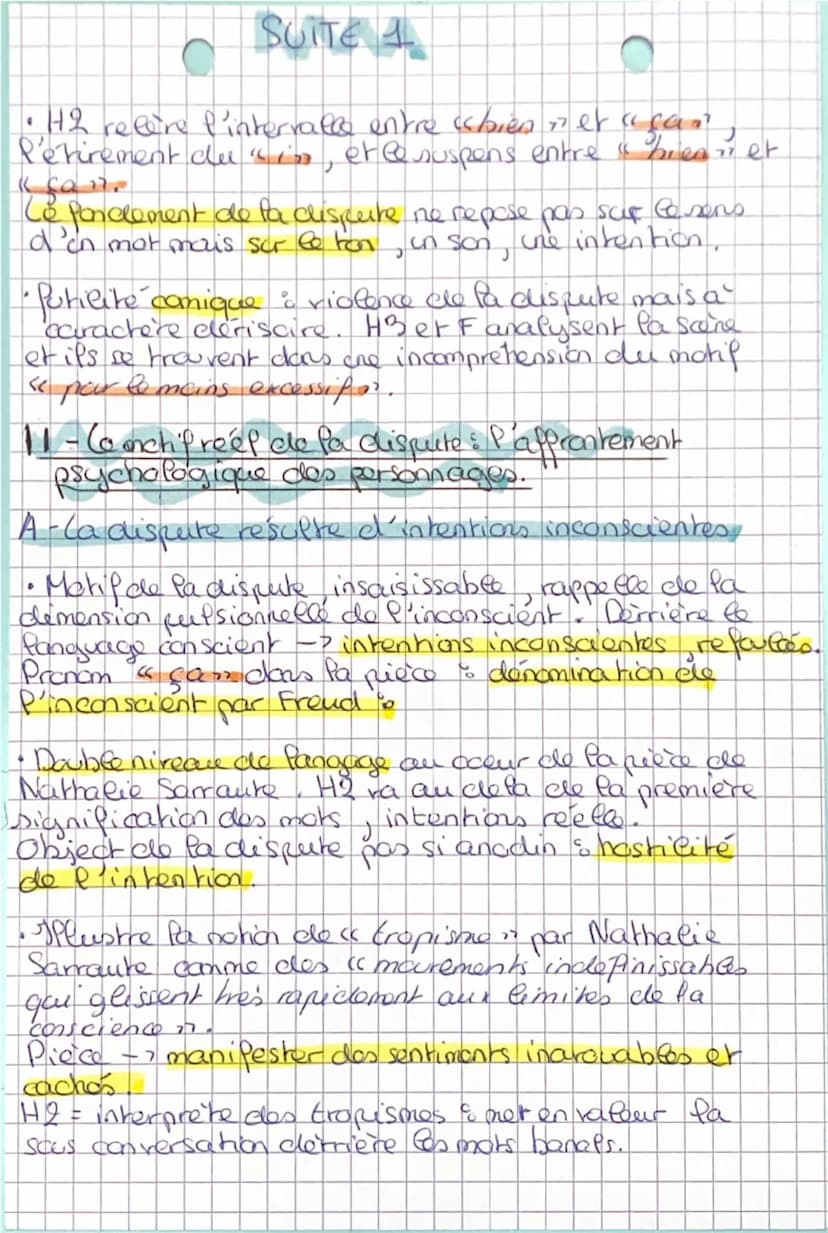 SUITE 1
• H2 relève l'intervalle entre « bien » et « ça »,
l'étirement du « i », et le suspens entre « bien » et
« ça ».
Le fondement de la dispute ne repose pas sur le sens
d'un mot mais sur le ton, un son, une intention.
• futilité comique : violence de la dispute mais a
caractère dérisoire. H3 et F analysent la scène
et ils se trouvent dans une incompréhension du motif
« pour le moins excessif ».
II - Le motif réel de la dispute : l'affrontement
psychologique des personnages.
A - La dispute résulte d'intentions inconscientes
• Motif de la dispute, insaisissable, rappelle de la
dimension pulsionnelle de l'inconscient. Derrière le
language conscient -> intentions inconscientes, refoulées.
Pronom « ça » dans la pièce : dénomination de
l'inconscient par Freud :
• Double niveau de langage au coeur de la pièce de
Nathalie Sarraute. H2 va au delà de la première
signification des mots, intentions réelle.
Object de la dispute pas si anodin : hostilité
de l'intention.
• Illustre la notion de « tropisme » par Nathalie
Sarraute comme des « mouvements indéfinissables
qui glissent très rapidement aux limites de la
conscience ».
Pièce -> manifester des sentiments inavouables et
cachés.
H2 = interprète des tropismes : met en valeur la
sous conversation derrière les mots banals.